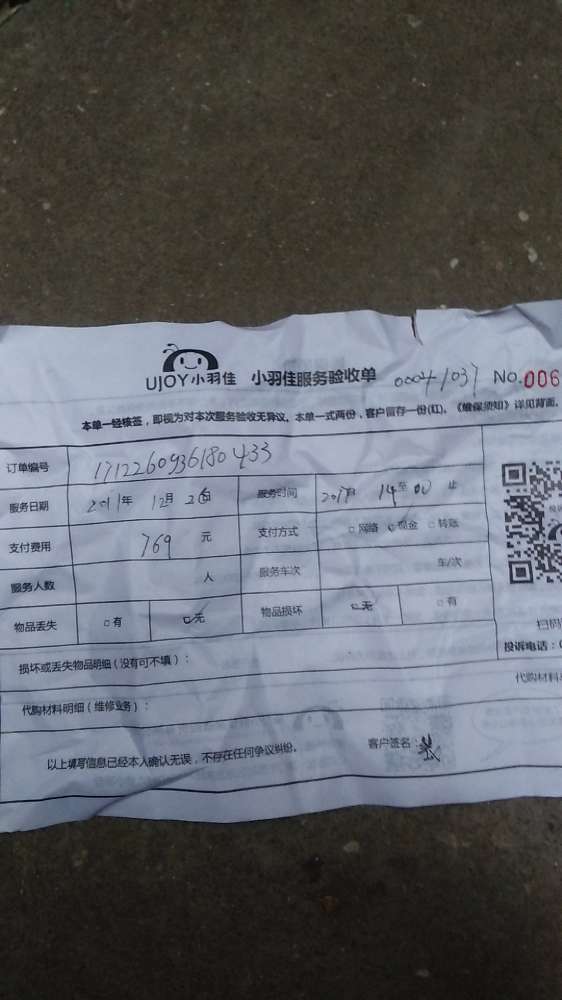 UJOY小羽佳 小羽佳服务验收单 00041037 No.006
本单一经核签，即视为对本次服务验收无异议。本单一式两份，客户留存一份(红)。《维保须知》详见背面。
订单编号 1712260936180433
服务日期 年 12月 日 服务时间 14至00止
支付费用 769 元 支付方式 网络 现金 转账
服务人数 人 服务车次 车/次
物品丢失 有 无 物品损坏 无 有
扫码
损坏或丢失物品明细（没有可不填）： 投诉电话：
代购材料明细（维修业务）： 代购材料
以上填写信息已经本人确认无误，不存在任何争议纠纷。 客户签名：